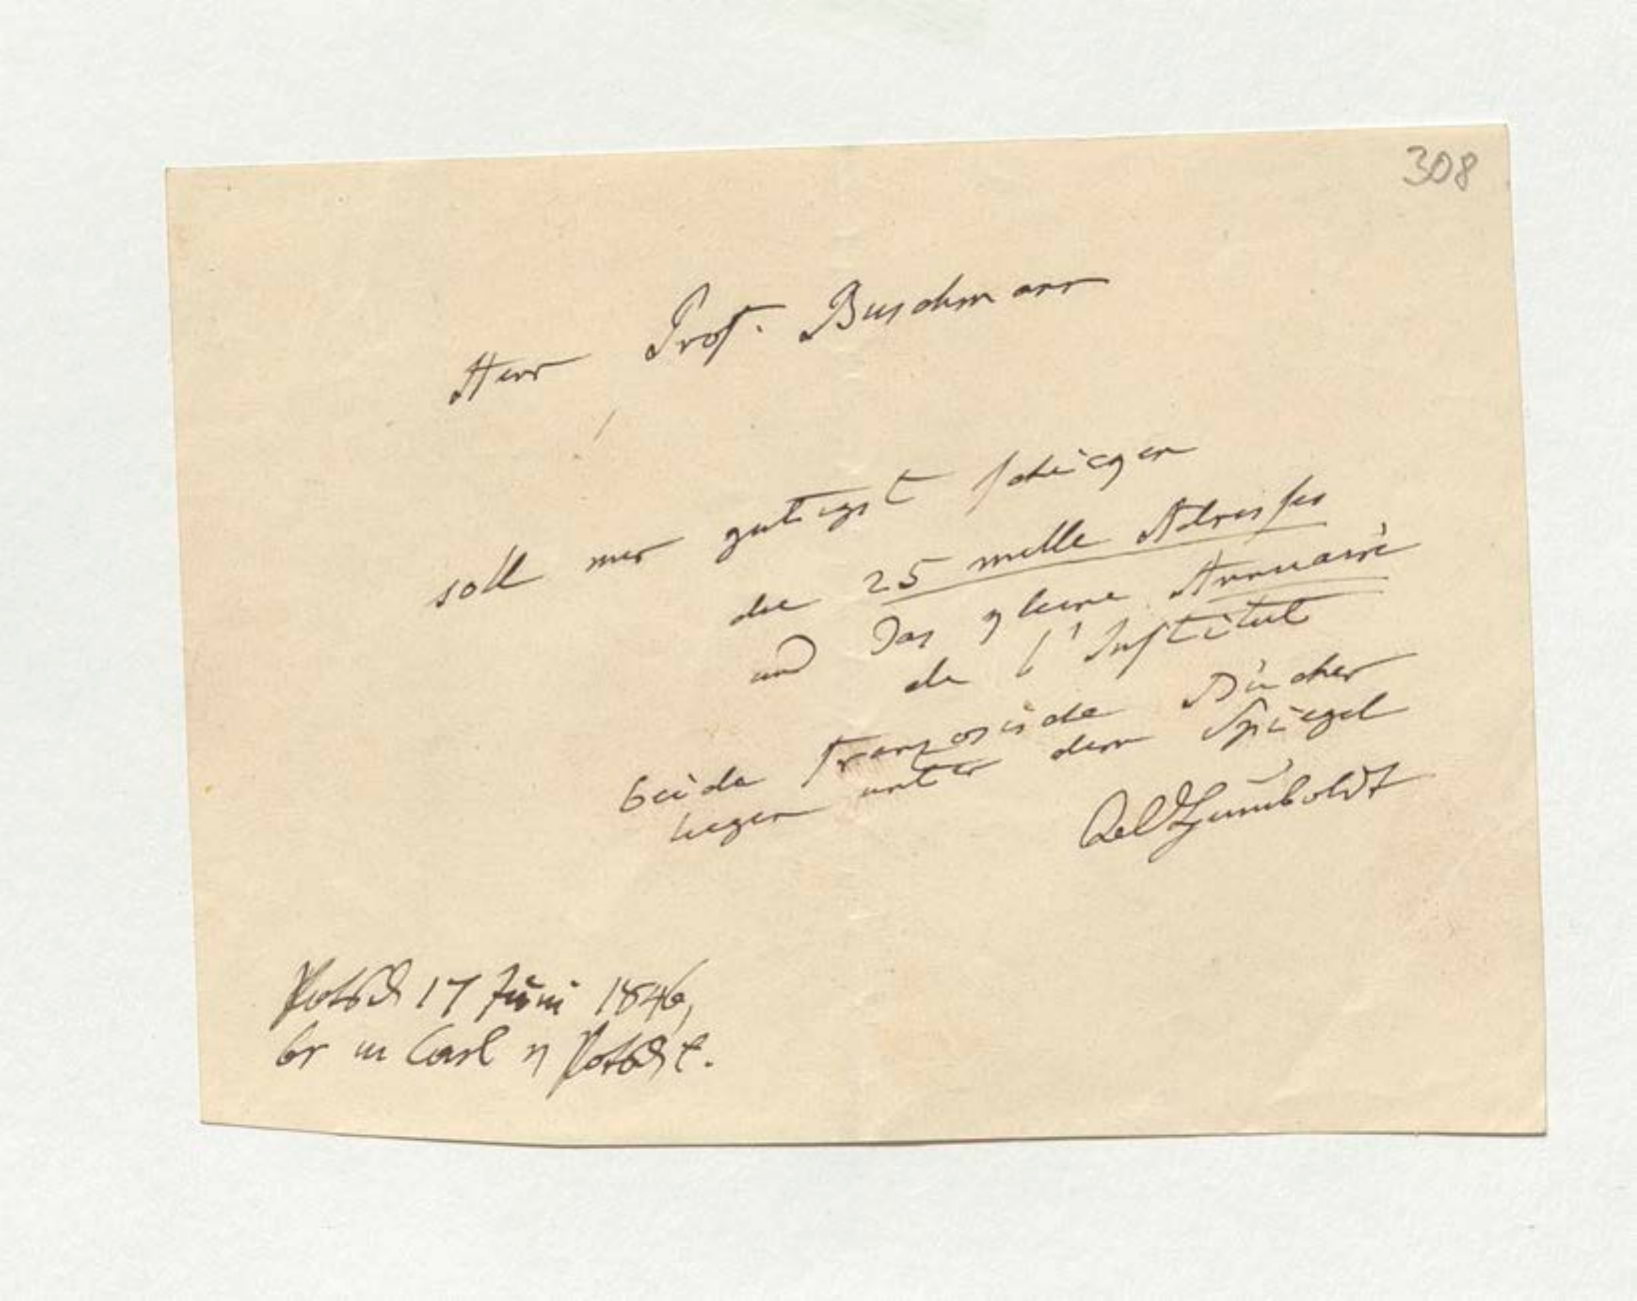 308
Herr Prof. Buschmann
soll mir gütigst schicken
die 25 mille Adresses
und das kleine Annuaire
de l'Institut
beide französische Bücher
liegen unter dem Spiegel
AlvHumboldt
Potsd 17 Juni 1846,
br m Carl n Potsd